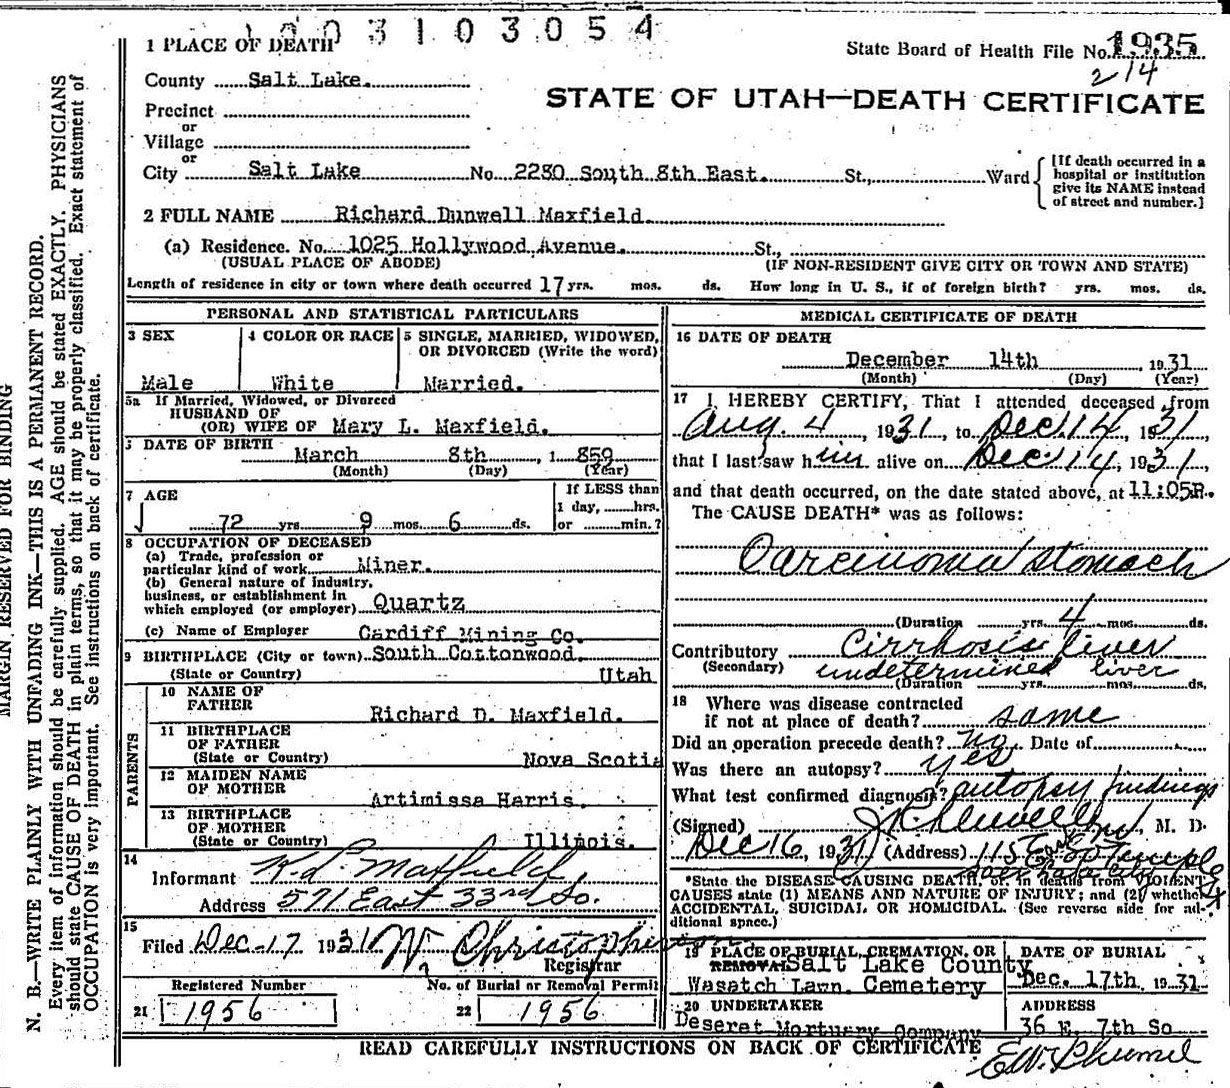 1003103054
1 PLACE OF DEATH
State Board of Health File No. 1935
214
County Salt Lake.
STATE OF UTAH—DEATH CERTIFICATE
Precinct
or
Village
or
City Salt Lake No. 2280 South 8th East. St., Ward
[If death occurred in a
hospital or institution
give its NAME instead
of street and number.]
2 FULL NAME Richard Dunwell Maxfield.
(a) Residence. No. 1025 Hollywood Avenue. St.,
(USUAL PLACE OF ABODE) (IF NON-RESIDENT GIVE CITY OR TOWN AND STATE)
Length of residence in city or town where death occurred 17 yrs. mos. ds. How long in U. S., if of foreign birth? yrs. mos. ds.
PERSONAL AND STATISTICAL PARTICULARS
3 SEX
Male
4 COLOR OR RACE
White
5 SINGLE, MARRIED, WIDOWED,
OR DIVORCED (Write the word)
Married.
5a If Married, Widowed, or Divorced
HUSBAND OF
(OR) WIFE OF Mary L. Maxfield.
DATE OF BIRTH
March 8th, 1859
(Month) (Day) (Year)
7 AGE
72 yrs 9 mos. 6 ds.
If LESS than
1 day, hrs.
or min.?
8 OCCUPATION OF DECEASED
(a) Trade, profession or
particular kind of work Miner.
(b) General nature of industry,
business, or establishment in
which employed (or employer) Quartz
(c) Name of Employer Cardiff Mining Co.
9 BIRTHPLACE (City or town) South Cottonwood.
(State or Country) Utah
PARENTS
10 NAME OF
FATHER
Richard D. Maxfield.
11 BIRTHPLACE
OF FATHER
(State or Country) Nova Scotia
12 MAIDEN NAME
OF MOTHER
Artimissa Harris.
13 BIRTHPLACE
OF MOTHER
(State or Country) Illinois.
14
Informant Maxfield
Address 571 East 33rd So.
15
Filed Dec-17 1931 Wm Christopherson
Registrar
Registered Number
21 1956
No. of Burial or Removal Permit
22 1956
MEDICAL CERTIFICATE OF DEATH
16 DATE OF DEATH
December 14th, 1931
(Month) (Day) (Year)
17 I HEREBY CERTIFY, That I attended deceased from
Aug. 4, 1931, to Dec. 14, 1931,
that I last saw him alive on Dec. 14, 1931,
and that death occurred, on the date stated above, at 11:05P.
The CAUSE DEATH* was as follows:
Carcinoma Stomach
(Duration yrs. 4 mos. ds.
Contributory Cirrhosis liver
(Secondary) undetermined liver
(Duration yrs. mos. ds.
18 Where was disease contracted
if not at place of death? same
Did an operation precede death? no. Date of
Was there an autopsy? yes
What test confirmed diagnosis? autopsy findings
(Signed) M. D.
Dec 16, 1931 (Address) 115 East So Temple
*State the DISEASE CAUSING DEATH, or, in deaths from VIOLENT
CAUSES state (1) MEANS AND NATURE OF INJURY; and (2) whether
ACCIDENTAL, SUICIDAL OR HOMICIDAL. (See reverse side for ad-
ditional space.)
19 PLACE OF BURIAL, CREMATION, OR
REMOVAL Salt Lake County
Wasatch Lawn. Cemetery
DATE OF BURIAL
Dec. 17th, 1931
20 UNDERTAKER
Deseret Mortuary Company
ADDRESS
36 E. 7th So
READ CAREFULLY INSTRUCTIONS ON BACK OF CERTIFICATE
MARGIN RESERVED FOR BINDING
N. B.—WRITE PLAINLY WITH UNFADING INK—THIS IS A PERMANENT RECORD.
Every item of information should be carefully supplied. AGE should be stated EXACTLY. PHYSICIANS
should state CAUSE OF DEATH in plain terms, so that it may be properly classified. Exact statement of
OCCUPATION is very important. See instructions on back of certificate.